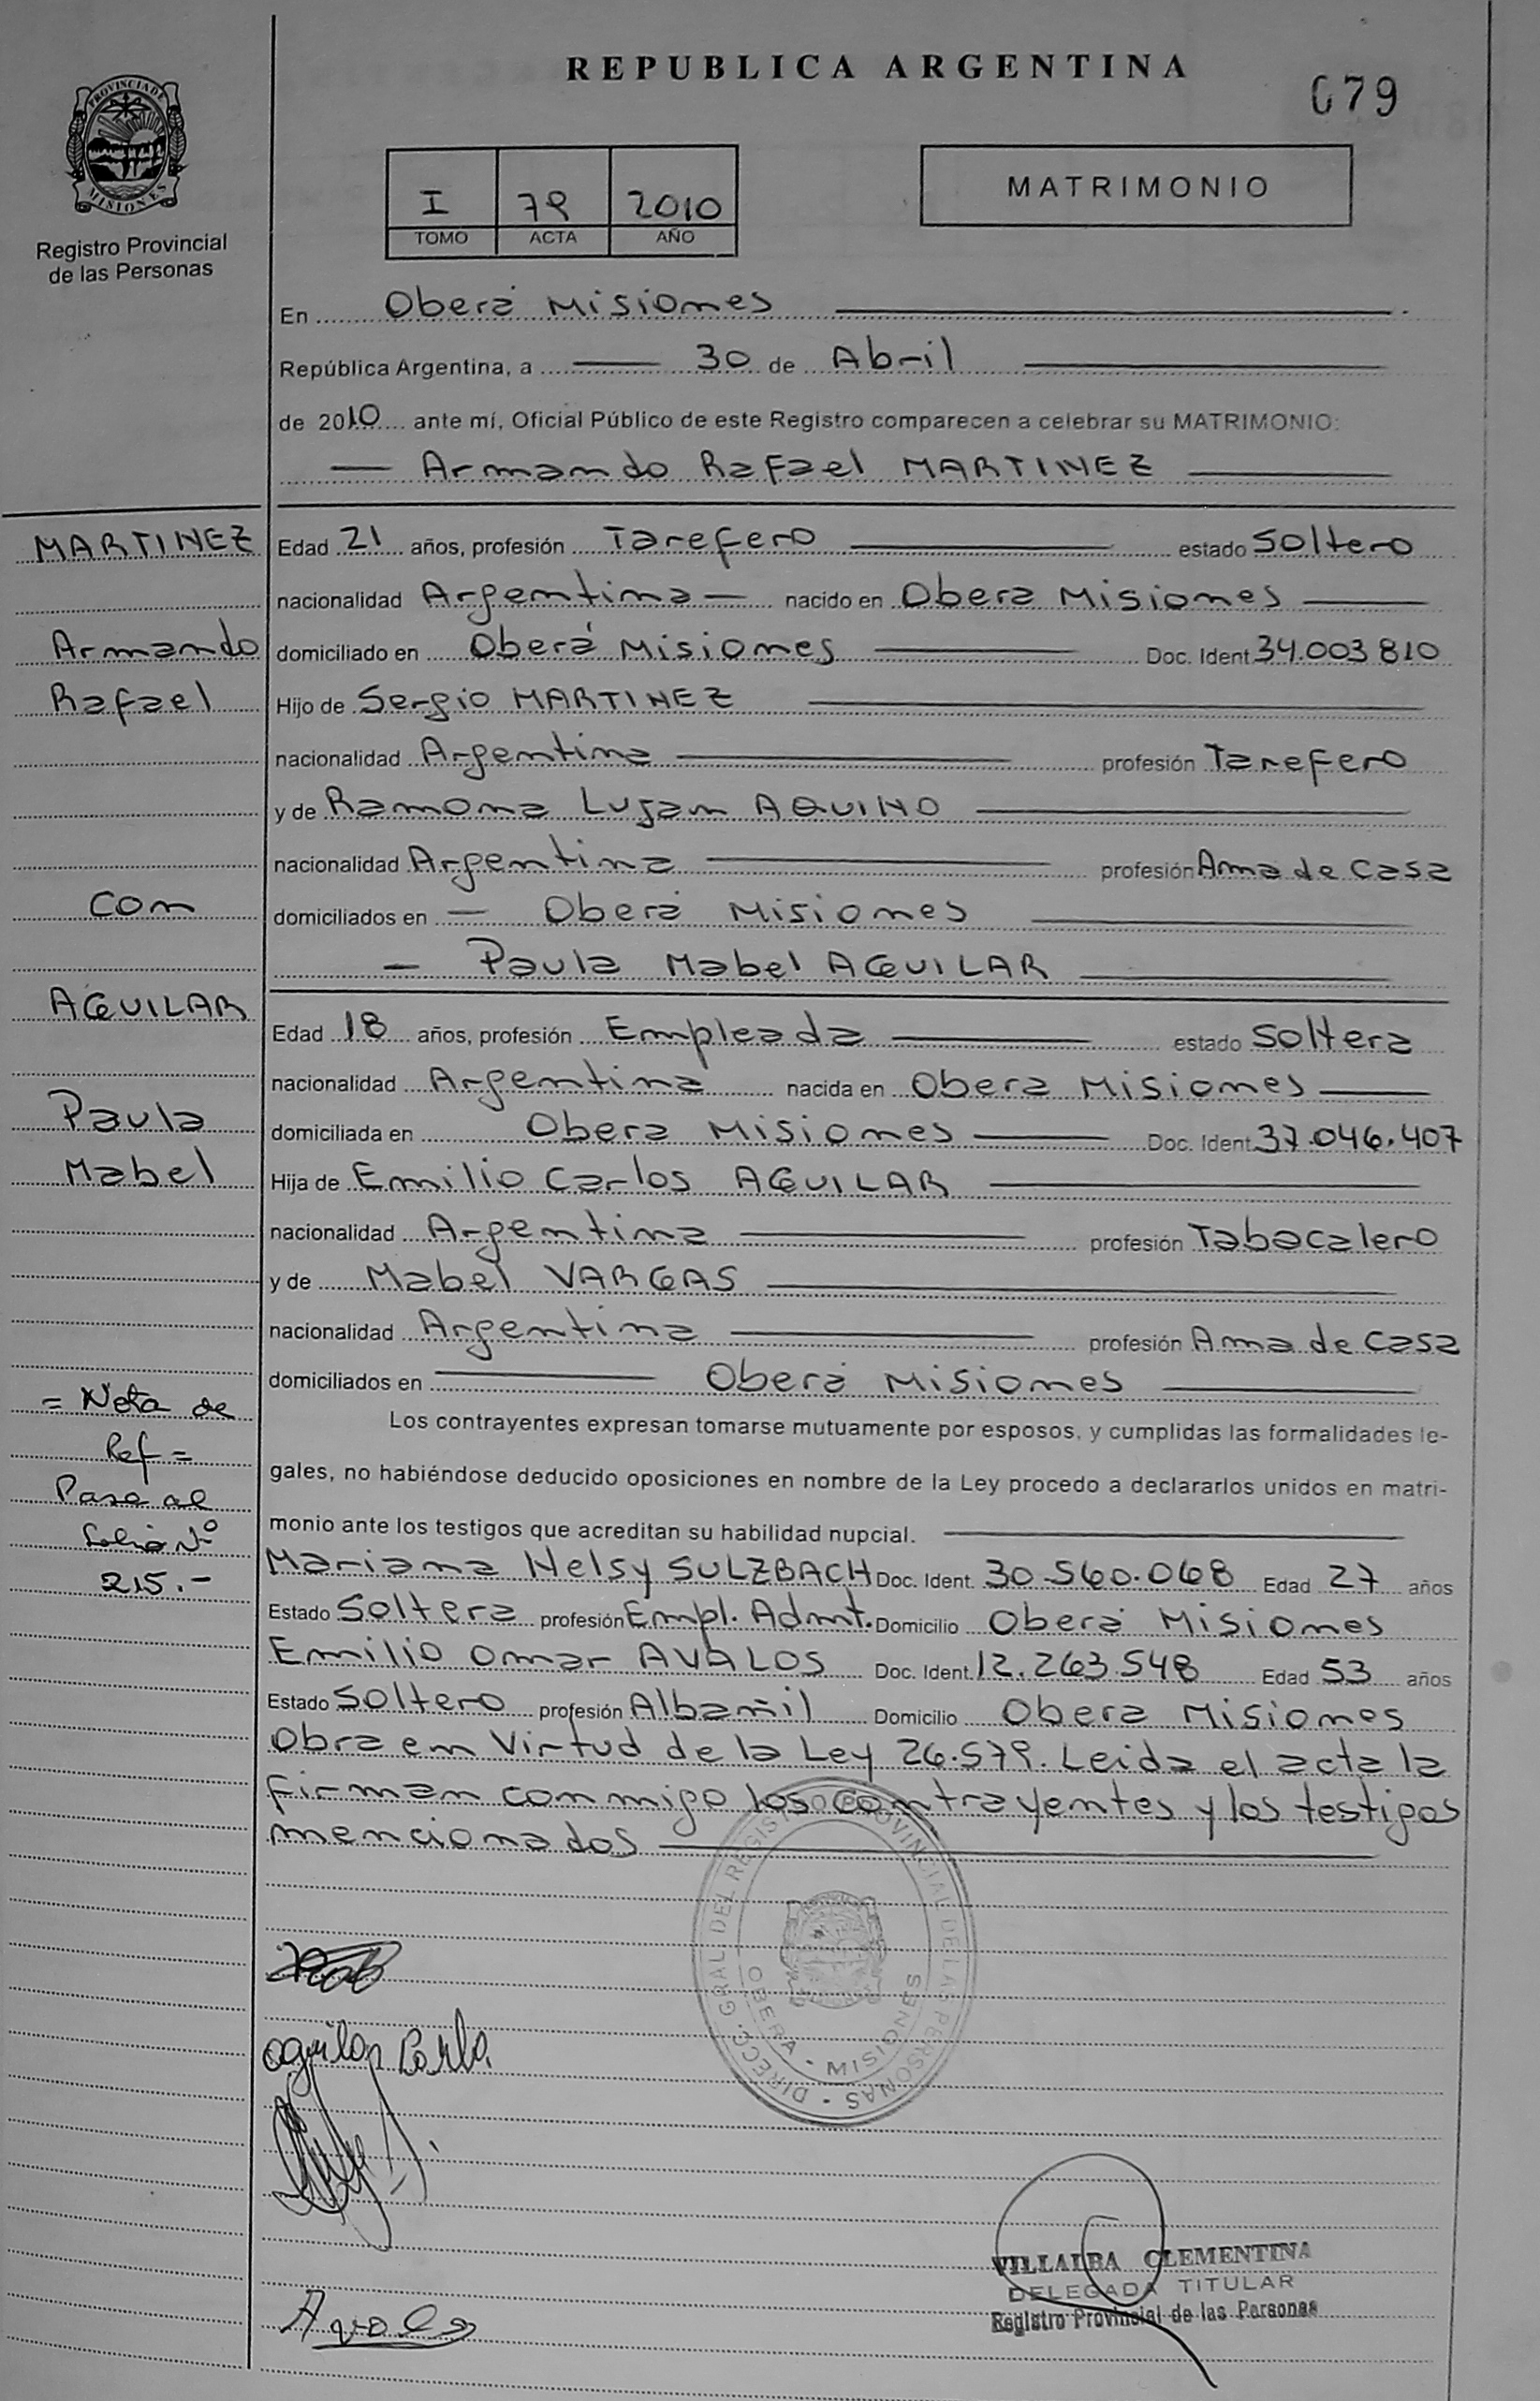 REPUBLICA ARGENTINA
079
PROVINCIA DE
MISIONES
Registro Provincial
de las Personas
I 79 2010
TOMO ACTA AÑO
MATRIMONIO
En Oberá Misiones
República Argentina, a 30 de Abril
de 2010 ante mí, Oficial Público de este Registro comparecen a celebrar su MATRIMONIO:
Armando Rafael MARTINEZ
MARTINEZ
Armando
Rafael
con
AGUILAR
Paula
Mabel
= Nota de
Ref =
Pase al
Folio Nº
215.-
Edad 21 años, profesión Tarefero estado Soltero
nacionalidad Argentina nacido en Obera Misiones
domiciliado en Oberá Misiones Doc. Ident. 34.003810
Hijo de Sergio MARTINEZ
nacionalidad Argentina profesión Tarefero
y de Ramona Lujan AQUINO
nacionalidad Argentina profesión Ama de Casa
domiciliados en Oberá Misiones
Paula Mabel AGUILAR
Edad 18 años, profesión Empleada estado Soltera
nacionalidad Argentina nacida en Obera Misiones
domiciliada en Obera Misiones Doc. Ident. 37.046.407
Hija de Emilio Carlos AGUILAR
nacionalidad Argentina profesión Tabacalero
y de Mabel VARGAS
nacionalidad Argentina profesión Ama de Casa
domiciliados en Oberá Misiones
Los contrayentes expresan tomarse mutuamente por esposos, y cumplidas las formalidades le-
gales, no habiéndose deducido oposiciones en nombre de la Ley procedo a declararlos unidos en matri-
monio ante los testigos que acreditan su habilidad nupcial.
Mariana Nelsy SULZBACH Doc. Ident. 30.560.068 Edad 27 años
Estado Soltera profesión Empl. Admt. Domicilio Oberá Misiones
Emilio Omar AVALOS Doc. Ident. 12.263.548 Edad 53 años
Estado Soltero profesión Albañil Domicilio Obera Misiones
Obra en Virtud de la Ley 26.579. Leida el acta la
firman conmigo los contrayentes y los testigos
mencionados
DIRECC. GRAL. DEL REGISTRO PROVINCIAL DE LAS PERSONAS
OBERA - MISIONES
aguilar Paula
Avalos
VILLALBA CLEMENTINA
DELEGADA TITULAR
Registro Provincial de las Personas